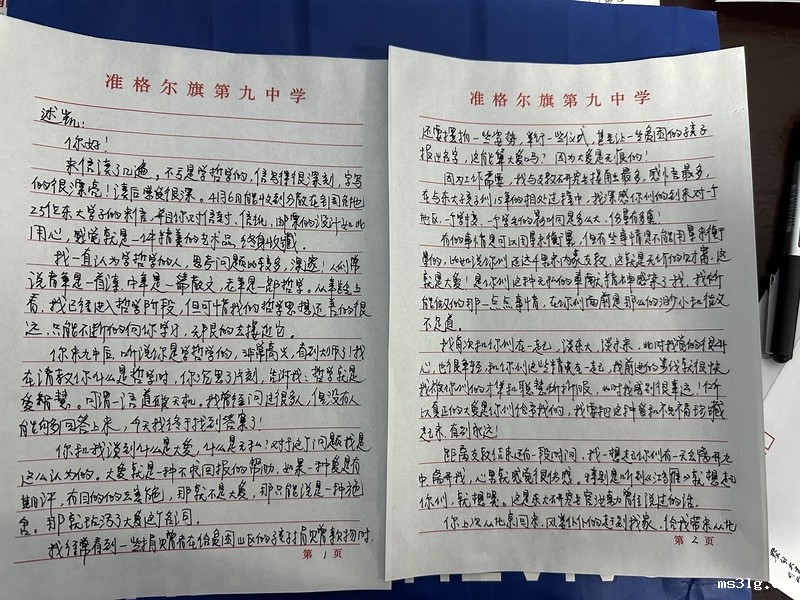 准格尔旗第九中学
述凯:
你好!
来信读了几遍,不亏是学哲学的,信写得很深刻,字写
的很漂亮!读后感受很深。4月6日能收到分散在全国各地
25位东大学子的来信,并且对信封、信纸、邮票的设计如此
用心,感觉就是一件精美的艺术品,终身收藏。
我一直认为学哲学的人,思考问题比较多,深邃!人们常
说青年是一首诗,中年是一篇散文,老年是一部哲学。从年龄上
看,我已经进入哲学阶段,但可惜我的哲学思想还差的很
远,只能不断的向你学习,求职的去接近它。
你来九中后,听说你是学哲学的,非常高兴,看到大师了!我
在请教你什么是哲学时,你沉思了片刻,告诉我:哲学就是
爱智慧。可谓一语道破天机。我曾经问过很多人,但没有人
能够回答上来,今天我终于找到答案了!
你和我谈到什么是大爱,什么是无私?对于这个问题我是
这么认为的。大爱就是一种不求回报的帮助,如果一种爱是有
期许,有目的的去实施,那就不是大爱,那只能说是一种施
舍。那就玷污了大爱这个名词。
我经常看到一些捐赠者在给贫困山区的孩子捐赠款物时,
第 1 页
准格尔旗第九中学
还要摆拍一些姿势,举行一些仪式,甚至让一些贫困的孩子
报以名字,这能算大爱吗?因为大爱是无限的!
因为工作需要,我与支教大研究生接触最多,感情也最多,
在与东大孩子们15年的相处过程中,我深感你们的到来对一个
地区、一个学校、一个学生的影响是多么大,份量有多重!
有的事情是可以用尺来衡量,但有些事情是不能用尺来衡
量的,比如说你们这4千里来内蒙支教,这就是无价的财富,这
就是大爱!是你们这种无私的奉献精神感染了我,我所
能做的那一点点事情,在你们面前是那么的渺小和微
不足道。
我每次和你们在一起,谈东大,谈未来,此时我当的很开
心,也很享受,和你们这些精英在一起,我前进的步伐就很快
我被你们的才华和聪慧所折服,此时我感到很幸运!任何
以真正的大爱是你们给予我的,我要把这种爱和不老有珍藏
起来,直到永远!
距离支教结束还有一段时间,我一想起你们有一天会离开九
中离开我,心里就感觉很伤感,特别是听到《江海雁》就想起
你们,就想哭。这是东大研究生宫浩东曾经说过的话。
你上次从北京回来,风尘仆仆的赶到我家,给我带来从北
第 2 页
ms31g.